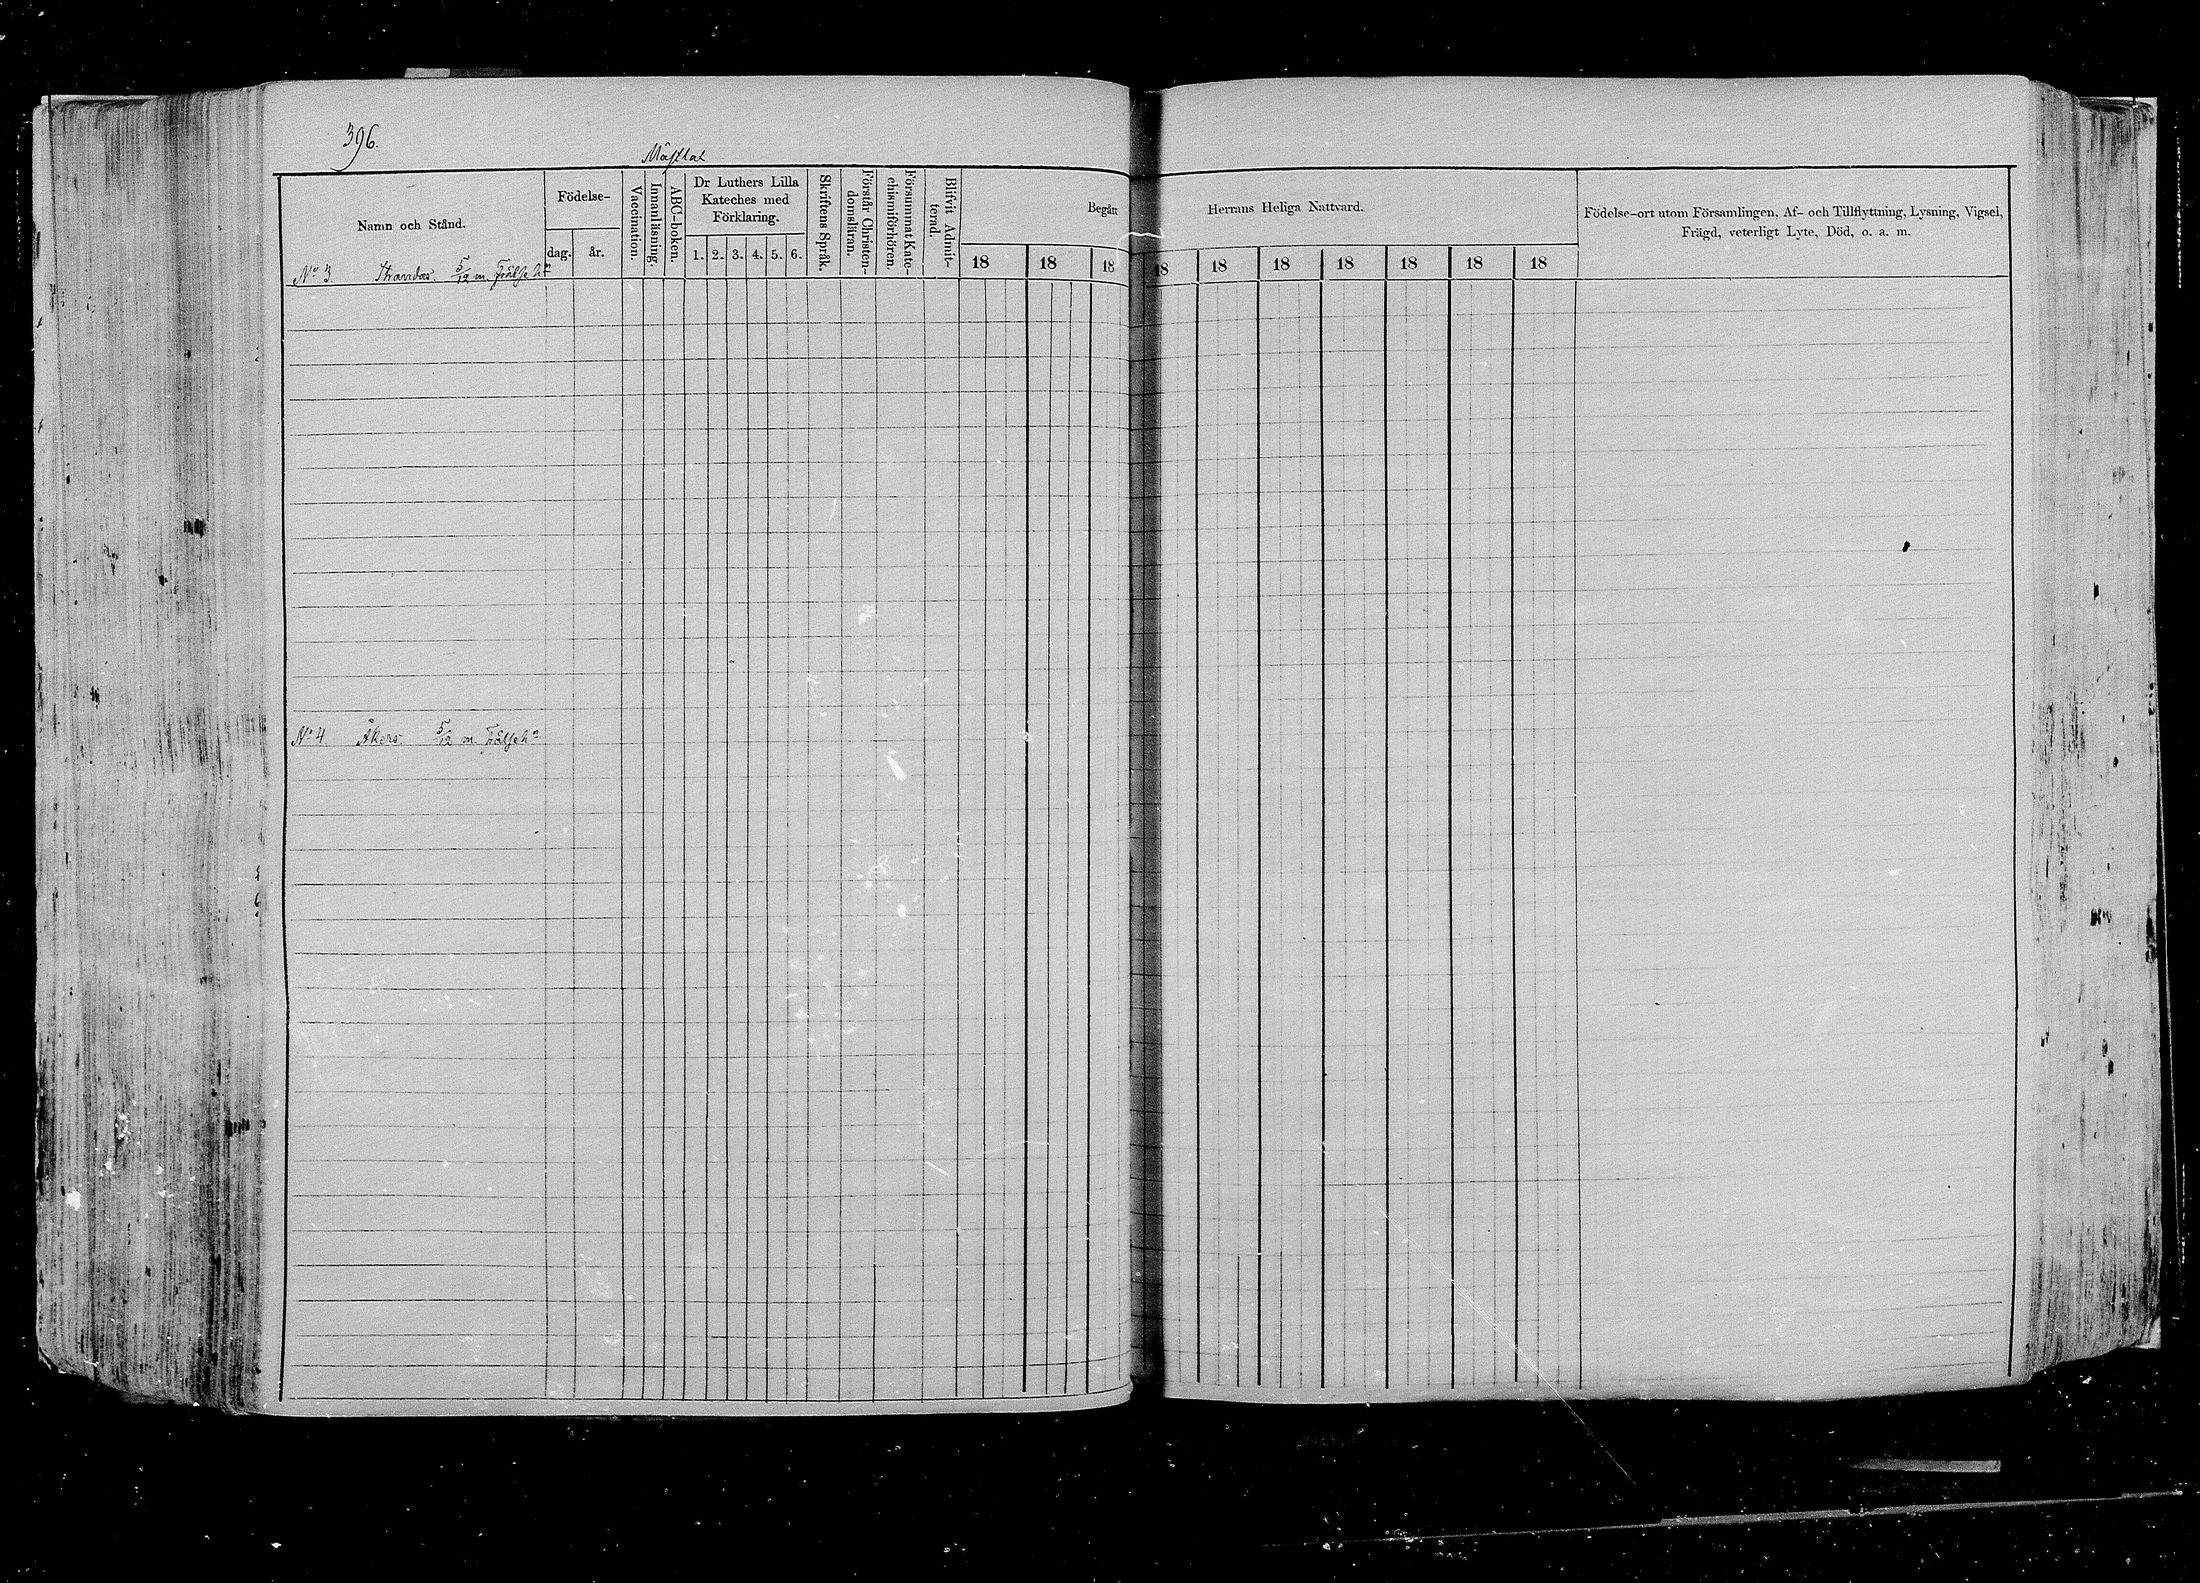 396.
Måsklot
Namn och Stånd.
Födelse-
dag. år.
Vaccination.
Innanläsning.
ABC-boken.
Dr Luthers Lilla
Kateches med
Förklaring.
1. 2. 3. 4. 5. 6.
Skriftens Språk.
Förstår Christen-
domsläran.
Försummat Kate-
chismiförhören.
Blifvit Admit-
terad.
Begått Herrans Heliga Nattvard.
18 18 18 18 18 18 18 18 18 18
Födelse-ort utom Församlingen, Af- och Tillflyttning, Lysning, Vigsel,
Frägd, veterligt Lyte, Död, o. a. m.
No 3. Strandas. 5/12 m. Frälse hn
No 4. Åkers. 5/12 m. Frälse hn